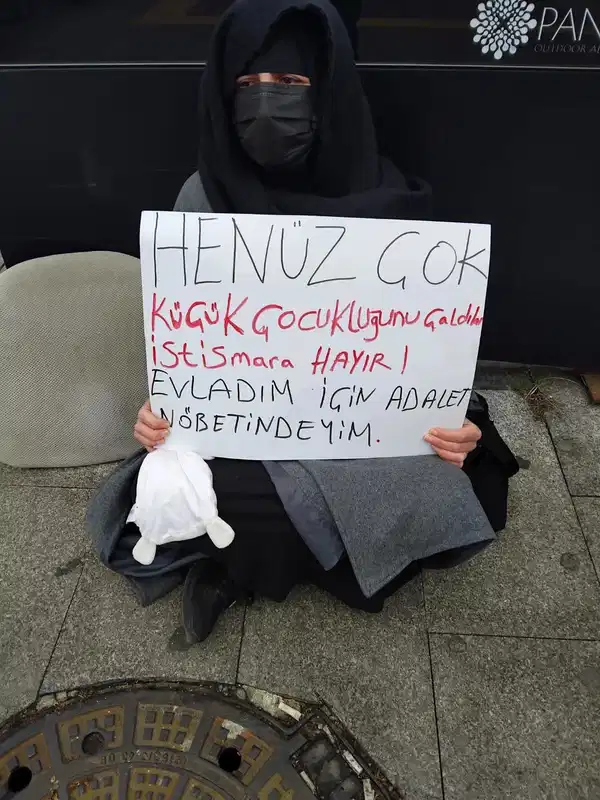 PAN
OUTDOOR A
HENÜZ ÇOK
KÜÇÜK ÇOCUKLUğUNU ÇALDILAR
İSTİSMARA HAYIR!
EVLADIM İÇİN ADALET
NÖBETİNDEYİM.